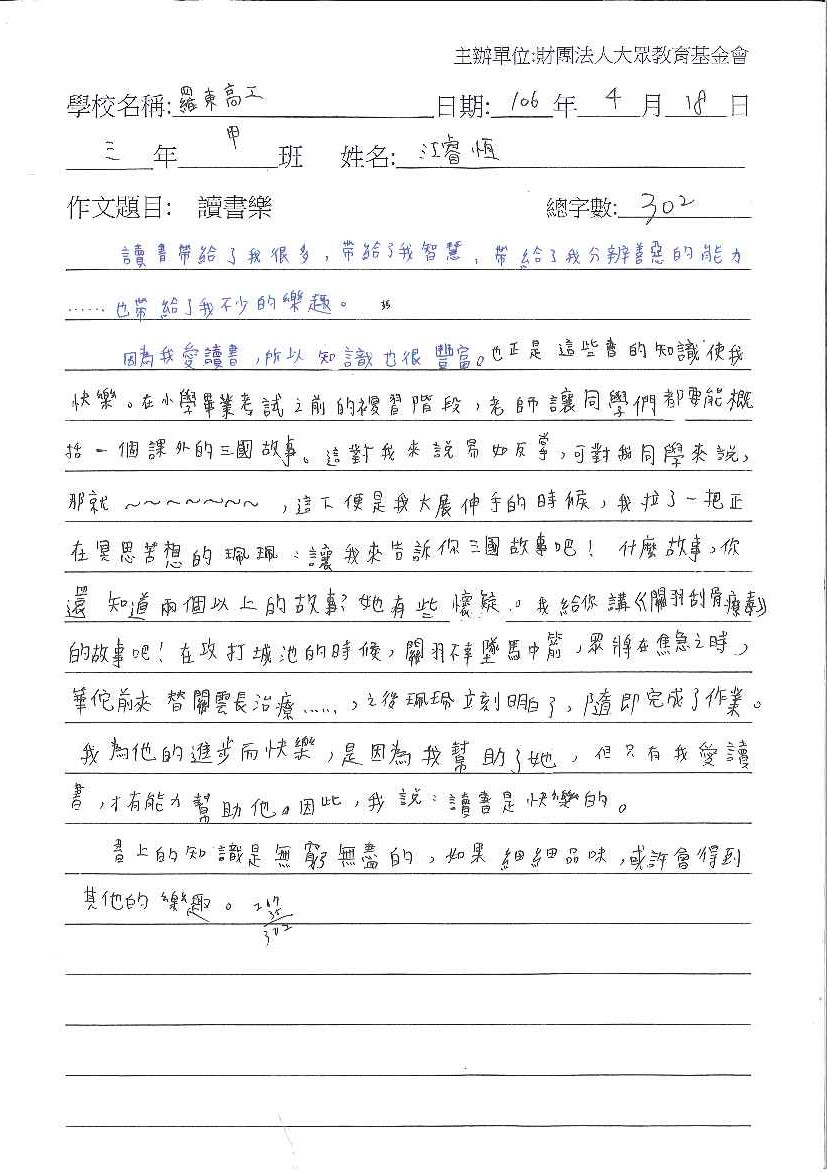 主辦單位:財團法人大眾教育基金會
學校名稱:羅東高工 日期: 106 年 4 月 18 日
三 年 甲 班 姓名: 江睿恆
作文題目: 讀書樂 總字數: 302
讀書帶給了我很多，帶給了我智慧，帶給了我分辨善惡的能力
……也帶給了我不少的樂趣。 35
因為我愛讀書，所以知識也很豐富。也正是這些書的知識使我
快樂。在小學畢業考試之前的複習階段，老師讓同學們都要能概
括一個課外的三國故事。這對我來說易如反掌，可對我同學來說，
那就～～～～～～～，這下便是我大展伸手的時候，我拉了一把正
在冥思苦想的珮珮：讓我來告訴你三國故事吧！什麼故事，你
還知道兩個以上的故事?她有些懷錠。我給你講《關羽刮骨療毒》
的故事吧！在攻打城池的時候，關羽不幸墜馬中箭，眾將在焦急之時，
華佗前來替關雲長治療……，之後珮珮立刻明白了，隨即完成了作業。
我為他的進步而快樂，是因為我幫助了她，但只有我愛讀
書，才有能力幫助他。因此，我說：讀書是快樂的。
書上的知識是無窮無盡的，如果細細品味，或許會得到
其他的樂趣。 267
35
302